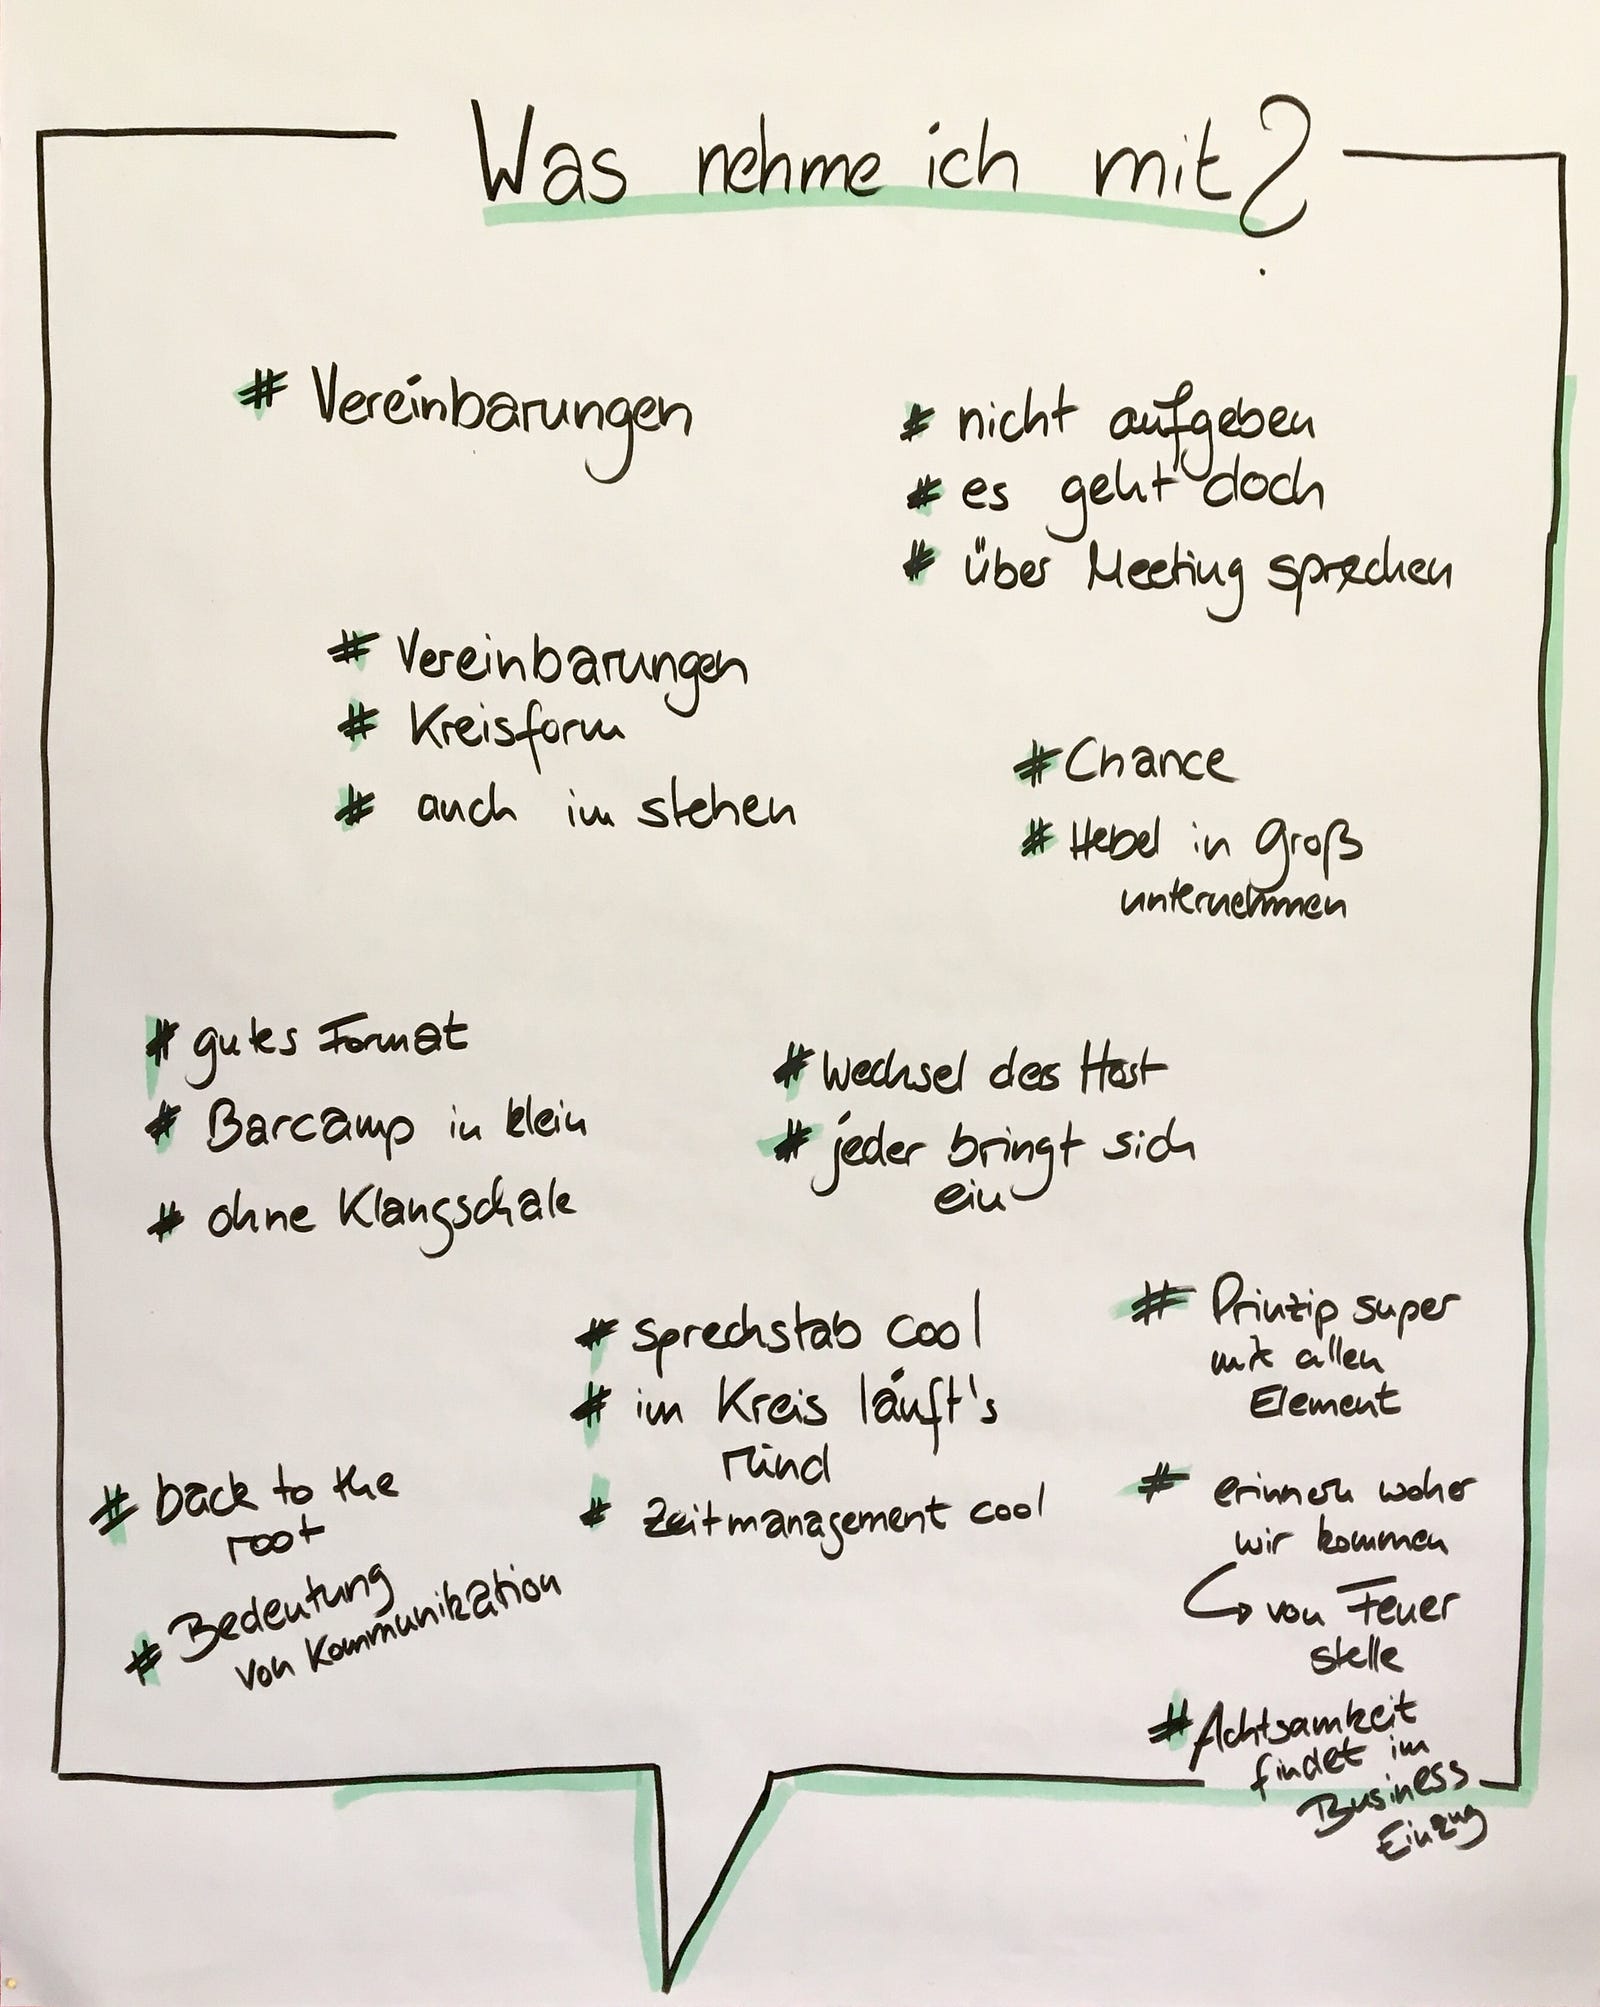 Was nehme ich mit?
# Vereinbarungen
# nicht aufgeben
# es geht doch
# über Meeting sprechen
# Vereinbarungen
# Kreisform
# auch im stehen
# Chance
# Hebel in Groß
unternehmen
# gutes Format
# Barcamp in klein
# ohne Klangschale
# Wechsel des Host
# jeder bringt sich
ein
# Sprechstab cool
# im Kreis läuft's
rund
# Zeitmanagement cool
# Prinzip super
mit allen
Element
# erinnern woher
wir kommen
↪ von Feuer
stelle
# Achtsamkeit
findet im
Business
Einzug
# back to the
root
# Bedeutung
von Kommunikation